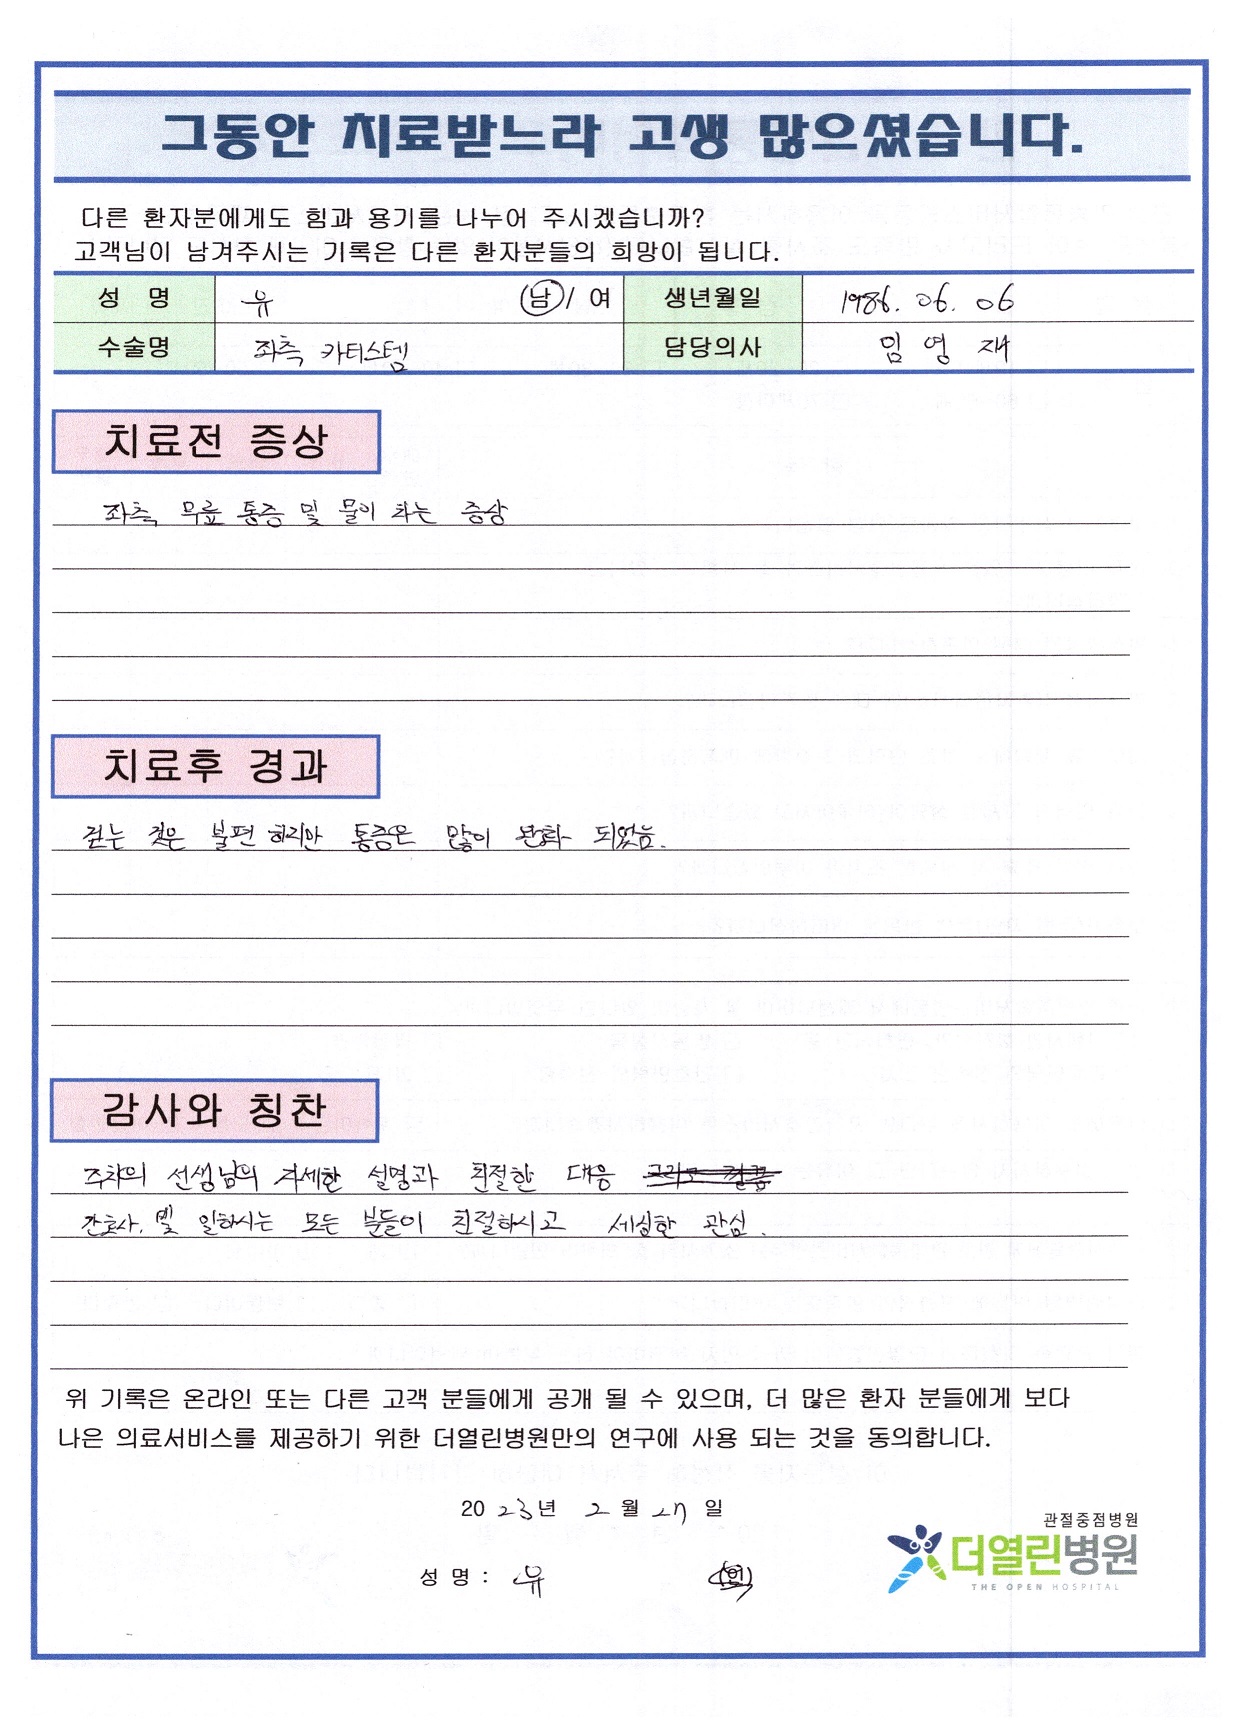 그동안 치료받느라 고생 많으셨습니다.
다른 환자분에게도 힘과 용기를 나누어 주시겠습니까?
고객님이 남겨주시는 기록은 다른 환자분들의 희망이 됩니다.
성 명 유 남 / 여 생년월일 1986. 06. 06
수술명 좌측 카티스템 담당의사 임 영 재
치료전 증상
좌측 무릎 통증 및 물이 차는 증상
치료후 경과
걷는 것은 불편 하지만 통증은 많이 완화 되었음.
감사와 칭찬
주차의 선생님의 자세한 설명과 친절한 대응
간호사. 및 일하시는 모든 분들이 친절하시고 세심한 관심.
위 기록은 온라인 또는 다른 고객 분들에게 공개 될 수 있으며, 더 많은 환자 분들에게 보다
나은 의료서비스를 제공하기 위한 더열린병원만의 연구에 사용 되는 것을 동의합니다.
2023년 2월 27일
관절중점병원
더열린병원
THE OPEN HOSPITAL
성 명 : 유 (인)